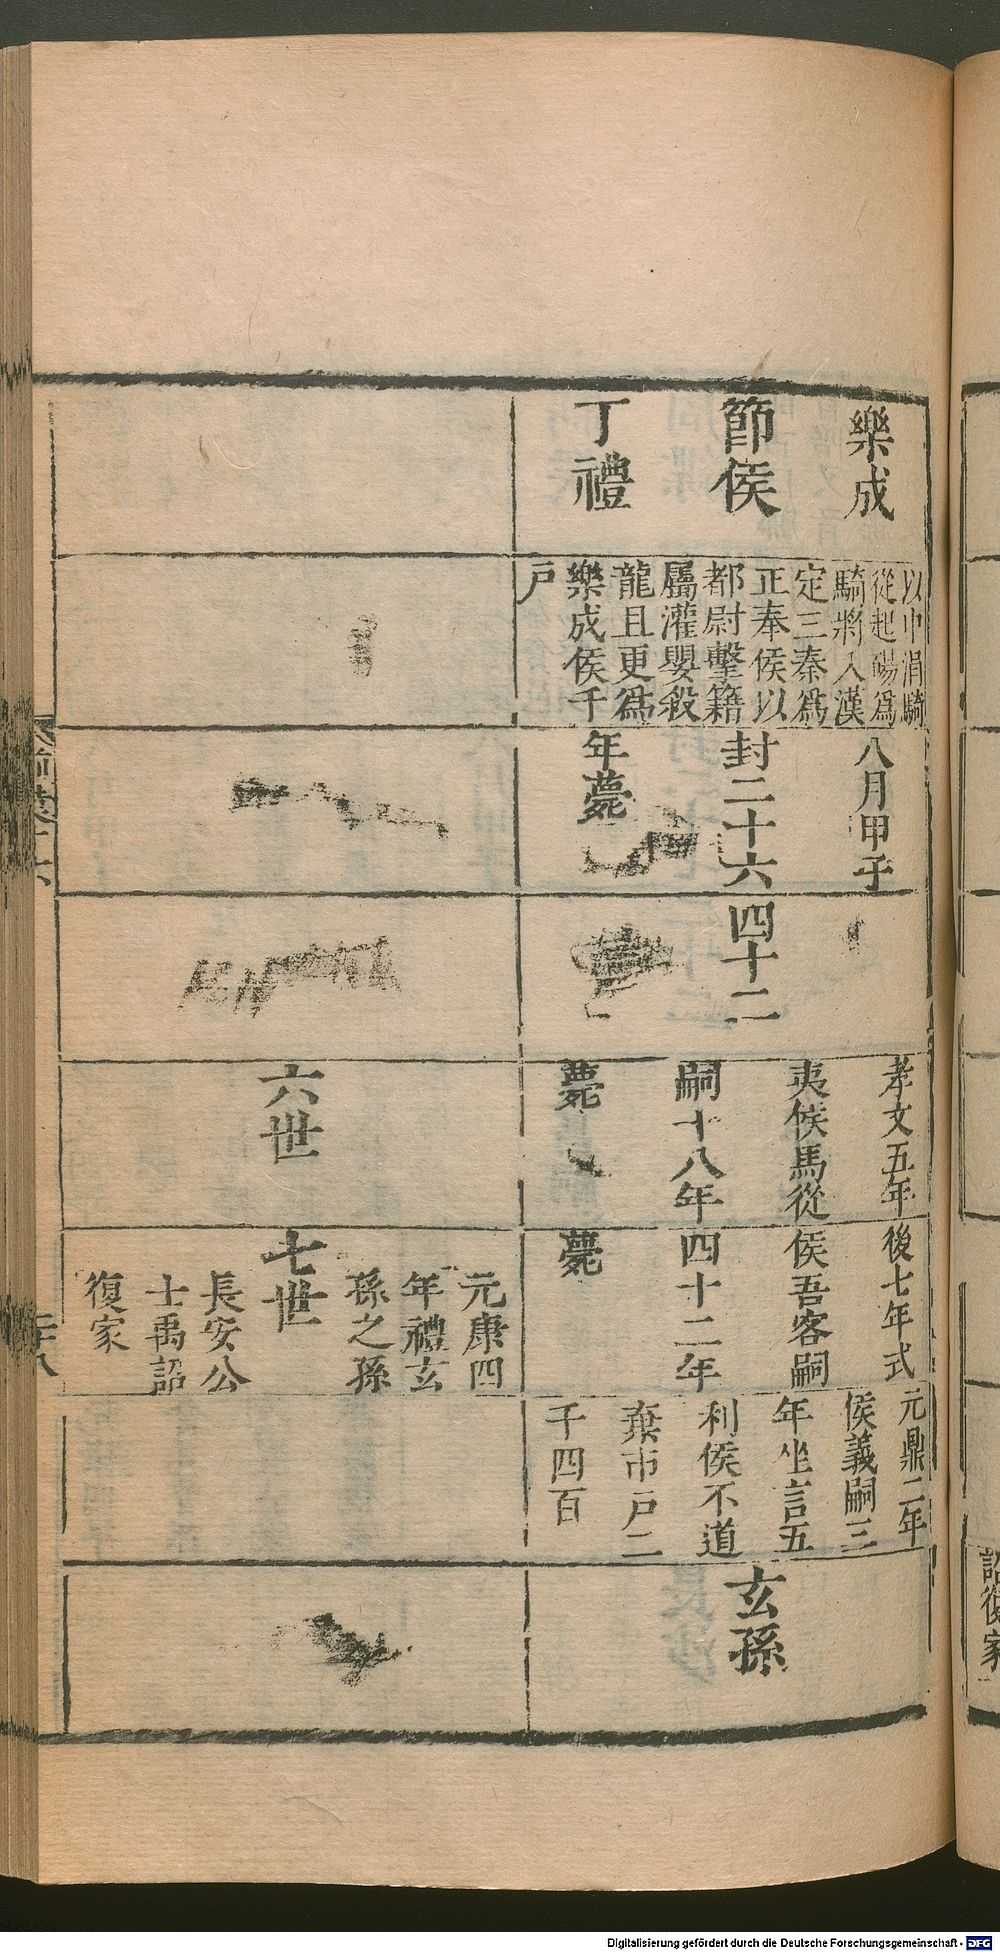 樂成
節侯
丁禮
以中涓騎
從起碭爲
騎將入漢
定三秦爲
正奉侯以
都尉擊籍
屬灌嬰殺
龍且更爲
樂成侯千
戶
八月甲子
封二十六
年薨
四十二
孝文五年
夷侯馬從
嗣十八年
薨
後七年式
侯吾客嗣
四十二年
薨
元鼎二年
侯義嗣三
年坐言五
利侯不道
棄市戶二
千四百
玄孫
六世
七世
元康四
年禮玄
孫之孫
長安公
士禹詔
復家
詔復家
Digitalisierung gefördert durch die Deutsche Forschungsgemeinschaft - DFG